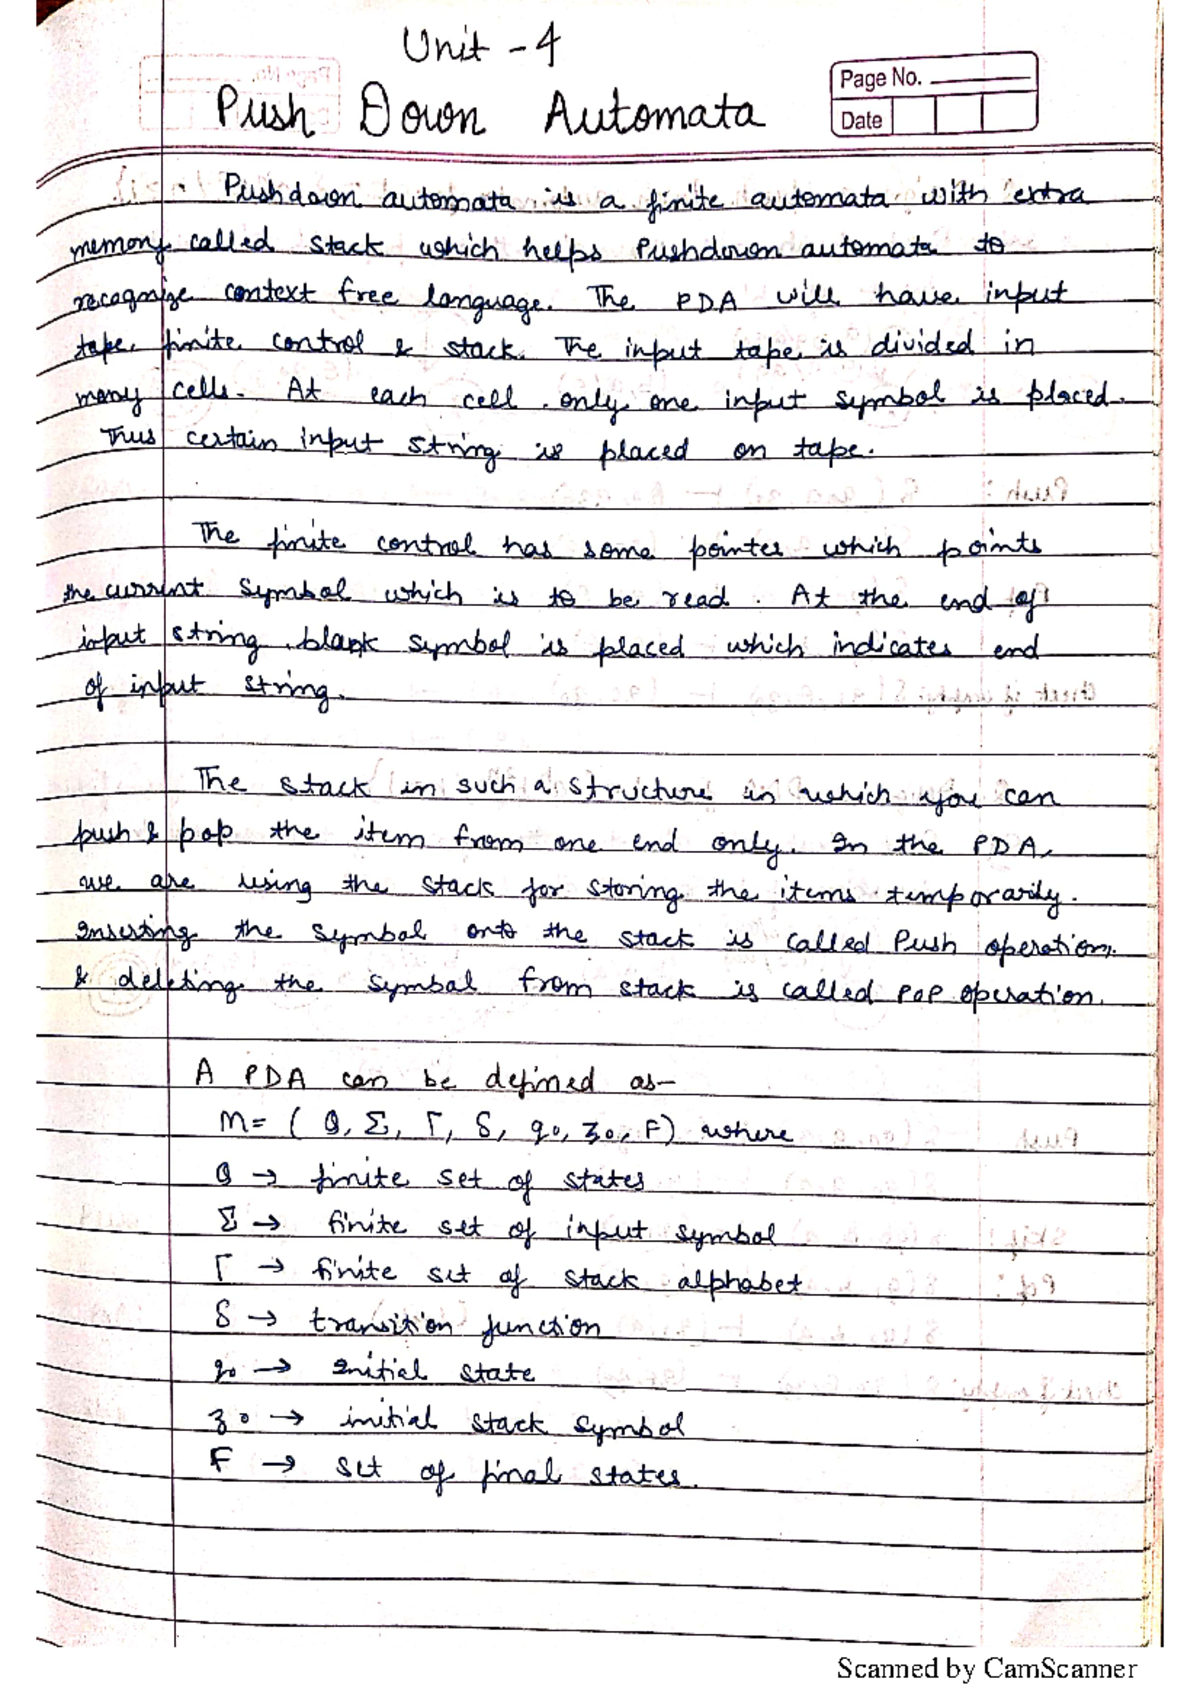 Unit - 4
Push Down Automata
Page No.
Date
Pushdown automata is a finite automata with extra
memory called stack which helps Pushdown automata to
recognize context free language. The PDA will have input
tape, finite control & stack. The input tape is divided in
many cells. At each cell only one input symbol is placed.
Thus certain input string is placed on tape.
The finite control has some pointer which points
the current symbol which is to be read. At the end of
input string blank symbol is placed which indicates end
of input string.
The stack in such a structure in which you can
push & pop the item from one end only. In the PDA,
we are using the stack for storing the items temporarily.
Inserting the symbol onto the stack is called Push operation.
& deleting the symbol from stack is called POP operation.
A PDA can be defined as-
M= ( Q, Σ, Γ, δ, q0, z0, F) where
Q → finite set of states
Σ → finite set of input symbol
Γ → finite set of stack alphabet
δ → transition function
q0 → Initial state
z0 → initial stack symbol
F → set of final states.
Scanned by CamScanner